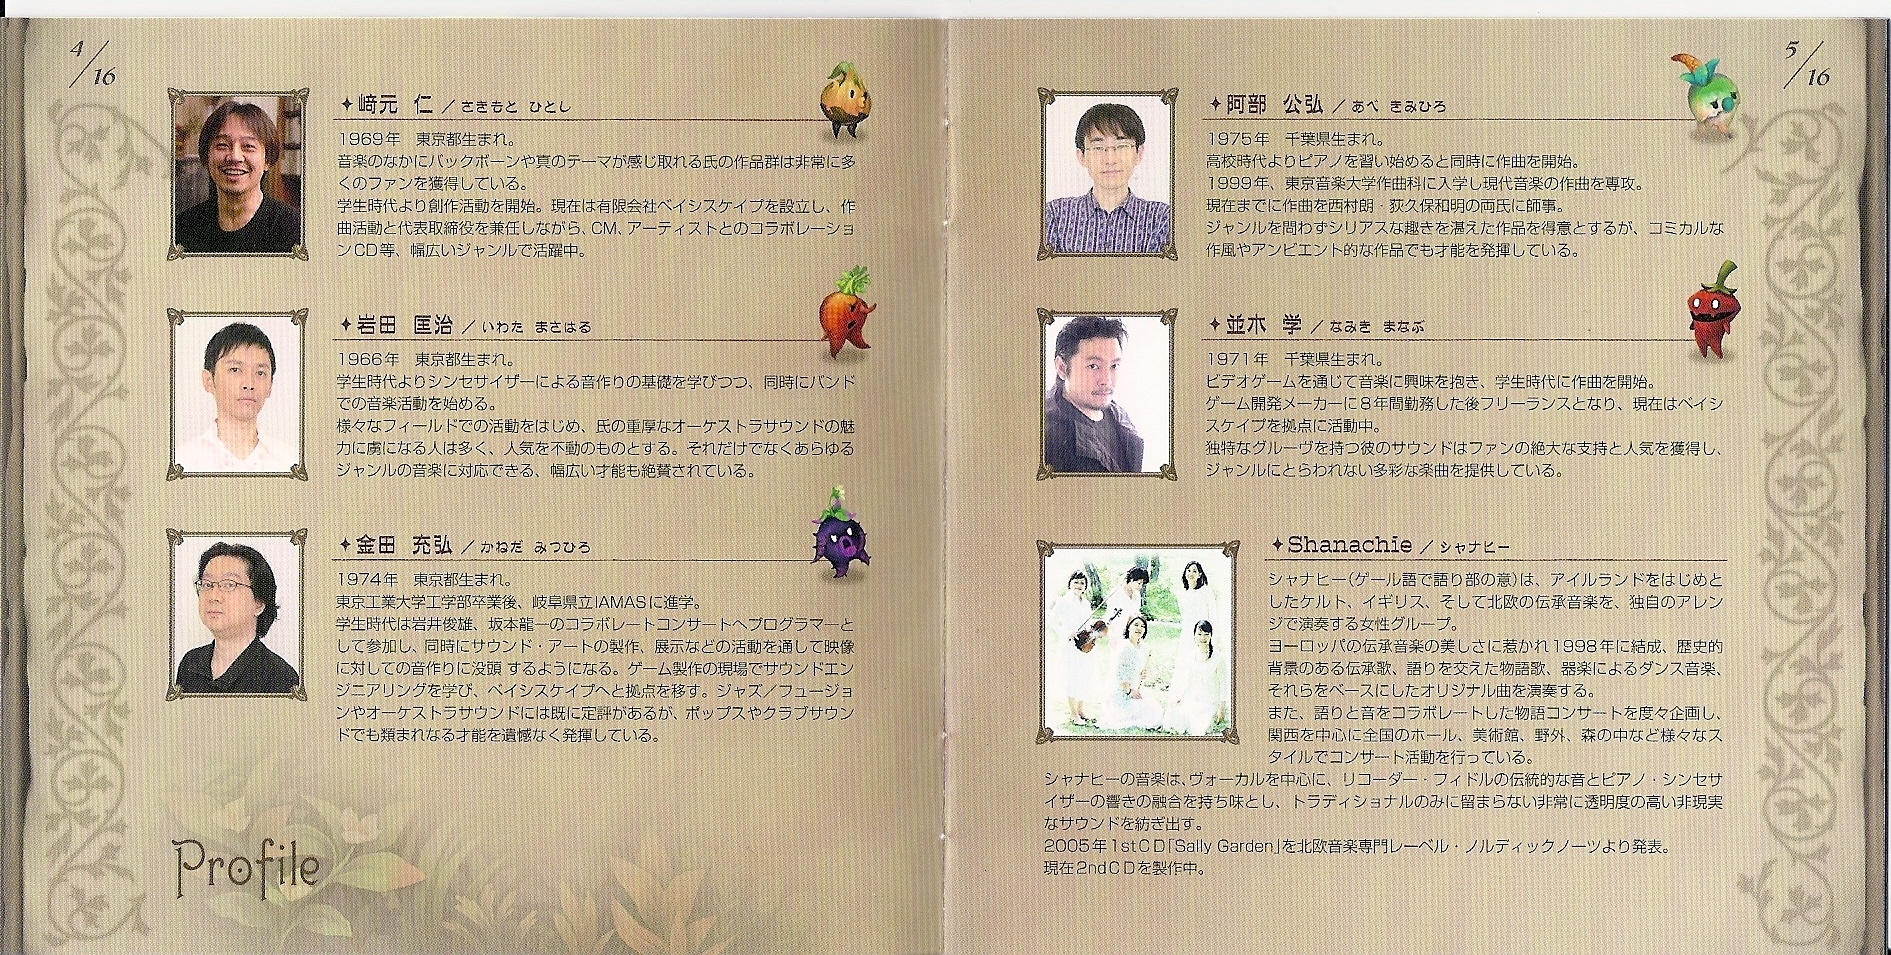 4/16
✦﨑元 仁／さきもと ひとし
1969年 東京都生まれ。
音楽のなかにバックボーンや真のテーマが感じ取れる氏の作品群は非常に多
くのファンを獲得している。
学生時代より創作活動を開始。現在は有限会社ベイシスケイプを設立し、作
曲活動と代表取締役を兼任しながら、CM、アーティストとのコラボレーショ
ンCD等、幅広いジャンルで活躍中。
✦岩田 匡治／いわた まさはる
1966年 東京都生まれ。
学生時代よりシンセサイザーによる音作りの基礎を学びつつ、同時にバンド
での音楽活動を始める。
様々なフィールドでの活動をはじめ、氏の重厚なオーケストラサウンドの魅
力に虜になる人は多く、人気を不動のものとする。それだけでなくあらゆる
ジャンルの音楽に対応できる、幅広い才能も絶賛されている。
✦金田 充弘／かねだ みつひろ
1974年 東京都生まれ。
東京工業大学工学部卒業後、岐阜県立IAMASに進学。
学生時代は岩井俊雄、坂本龍一のコラボレートコンサートへプログラマーと
して参加し、同時にサウンド・アートの製作、展示などの活動を通して映像
に対しての音作りに没頭 するようになる。ゲーム製作の現場でサウンドエン
ジニアリングを学び、ベイシスケイプへと拠点を移す。ジャズ／フュージョ
ンやオーケストラサウンドには既に定評があるが、ポップスやクラブサウン
ドでも類まれなる才能を遺憾なく発揮している。
Profile
5/16
✦阿部 公弘／あべ きみひろ
1975年 千葉県生まれ。
高校時代よりピアノを習い始めると同時に作曲を開始。
1999年、東京音楽大学作曲科に入学し現代音楽の作曲を専攻。
現在までに作曲を西村朗・荻久保和明の両氏に師事。
ジャンルを問わずシリアスな趣きを湛えた作品を得意とするが、コミカルな
作風やアンビエント的な作品でも才能を発揮している。
✦並木 学／なみき まなぶ
1971年 千葉県生まれ。
ビデオゲームを通じて音楽に興味を抱き、学生時代に作曲を開始。
ゲーム開発メーカーに8年間勤務した後フリーランスとなり、現在はベイシ
スケイプを拠点に活動中。
独特なグルーヴを持つ彼のサウンドはファンの絶大な支持と人気を獲得し、
ジャンルにとらわれない多彩な楽曲を提供している。
✦Shanachie／シャナヒー
シャナヒー(ゲール語で語り部の意)は、アイルランドをはじめと
したケルト、イギリス、そして北欧の伝承音楽を、独自のアレン
ジで演奏する女性グループ。
ヨーロッパの伝承音楽の美しさに惹かれ1998年に結成、歴史的
背景のある伝承歌、語りを交えた物語歌、器楽によるダンス音楽、
それらをベースにしたオリジナル曲を演奏する。
また、語りと音をコラボレートした物語コンサートを度々企画し、
関西を中心に全国のホール、美術館、野外、森の中など様々なス
タイルでコンサート活動を行っている。
シャナヒーの音楽は、ヴォーカルを中心に、リコーダー・フィドルの伝統的な音とピアノ・シンセサ
イザーの響きの融合を持ち味とし、トラディショナルのみに留まらない非常に透明度の高い非現実
なサウンドを紡ぎ出す。
2005年1stCD「Sally Garden」を北欧音楽専門レーベル・ノルディックノーツより発表。
現在2ndCDを製作中。